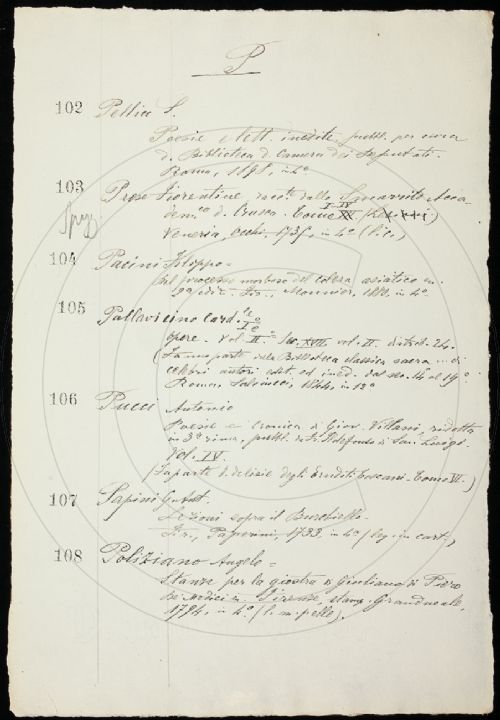 P
102 Pellico S.
Poesie e lett. inedite pubbl. per cura
d. Biblioteca d. Camera dei Deputati.
Roma, in 4º
103 Prose Fiorentine racc. dallo Smarrito Acca-
dem.co d. Crusca. Tomo I-IV XX
Venezia, Occhi, 1735, in 4º
104 Pacini Filippo =
Del processo morboso del colera asiatico
in 4º
105 Pallavicino Card.le
Opere. Vol. II. Sec. XVII vol. II. distrib. 24.
(Fanno parte della Biblioteca classica sacra ... di
celebri autori edit. ed ined. dal sec. 14 al 19º.
Roma, Salviucci, 1844, in 12º
106 Pucci Antonio
Poesie e Cronica di Giov. Villani ridotta
in 3ª rima, pubbl. da Fr. Ildefonso di San Luigi.
Vol. IV.
(Fa parte d. delizie degli Eruditi toscani. Tomo VI.)
107 Papini
Lezioni sopra il Burchiello.
Fir., Paperini, 1733, in 4º (leg. in cart.)
108 Poliziano Angelo =
Stanze per la giostra di Giuliano di Piero
de Medici Firenze, stamp. Granducale,
1794, in 4º (l. m. pelle).